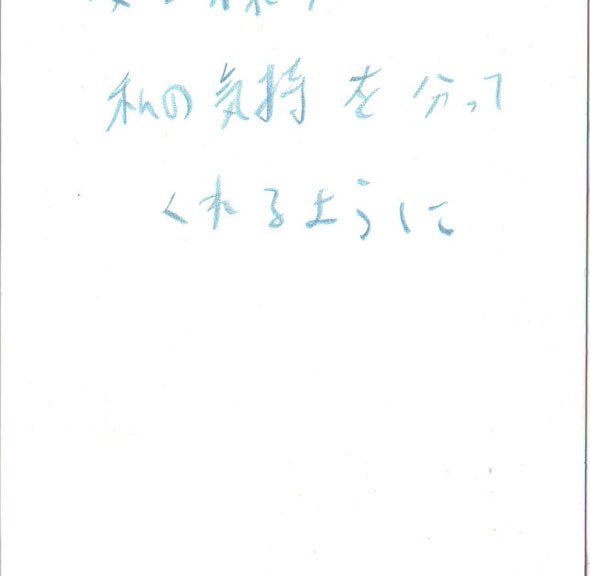 私の気持を分って
くれるように